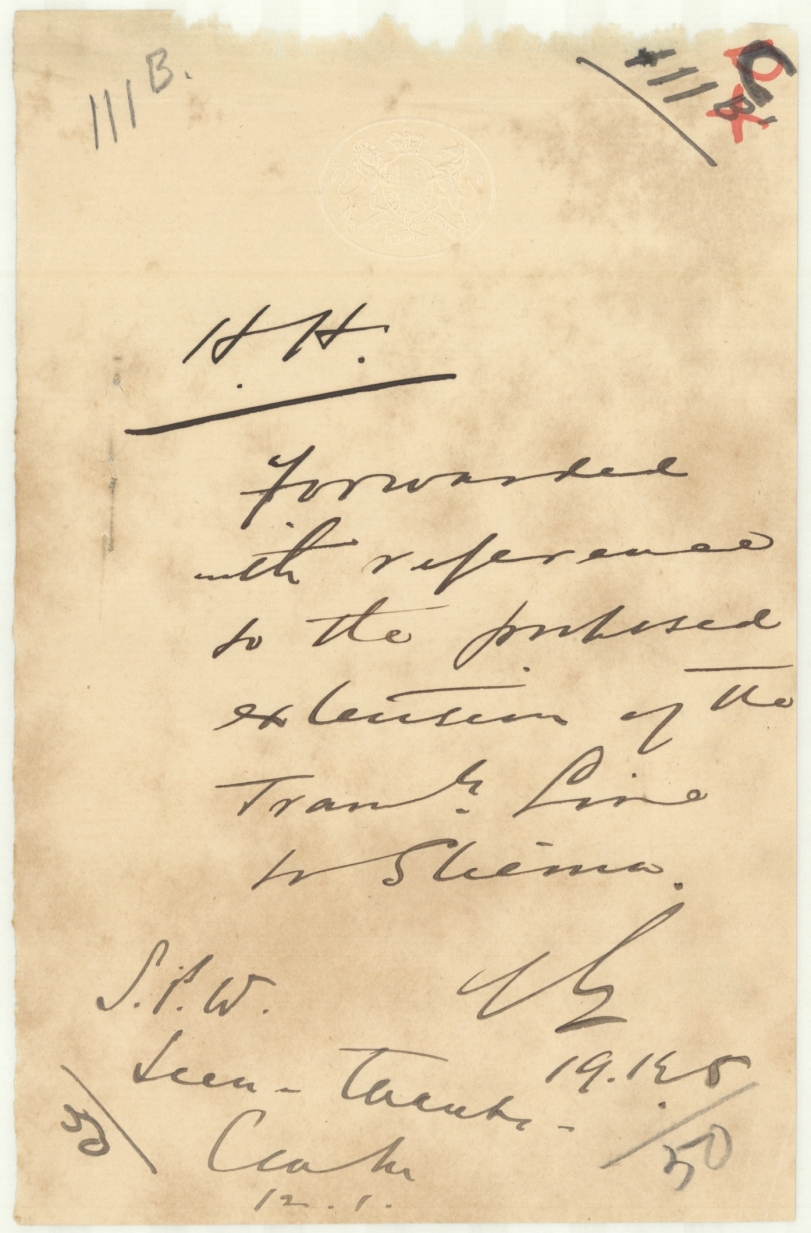 111 B.
111 B
C
H. H.
Forwarded
with reference
to the proposed
extension of the
Tram Line
to Shema.
S.P.W.
Seen - Thanks -
19.1
12. 1.
50
50